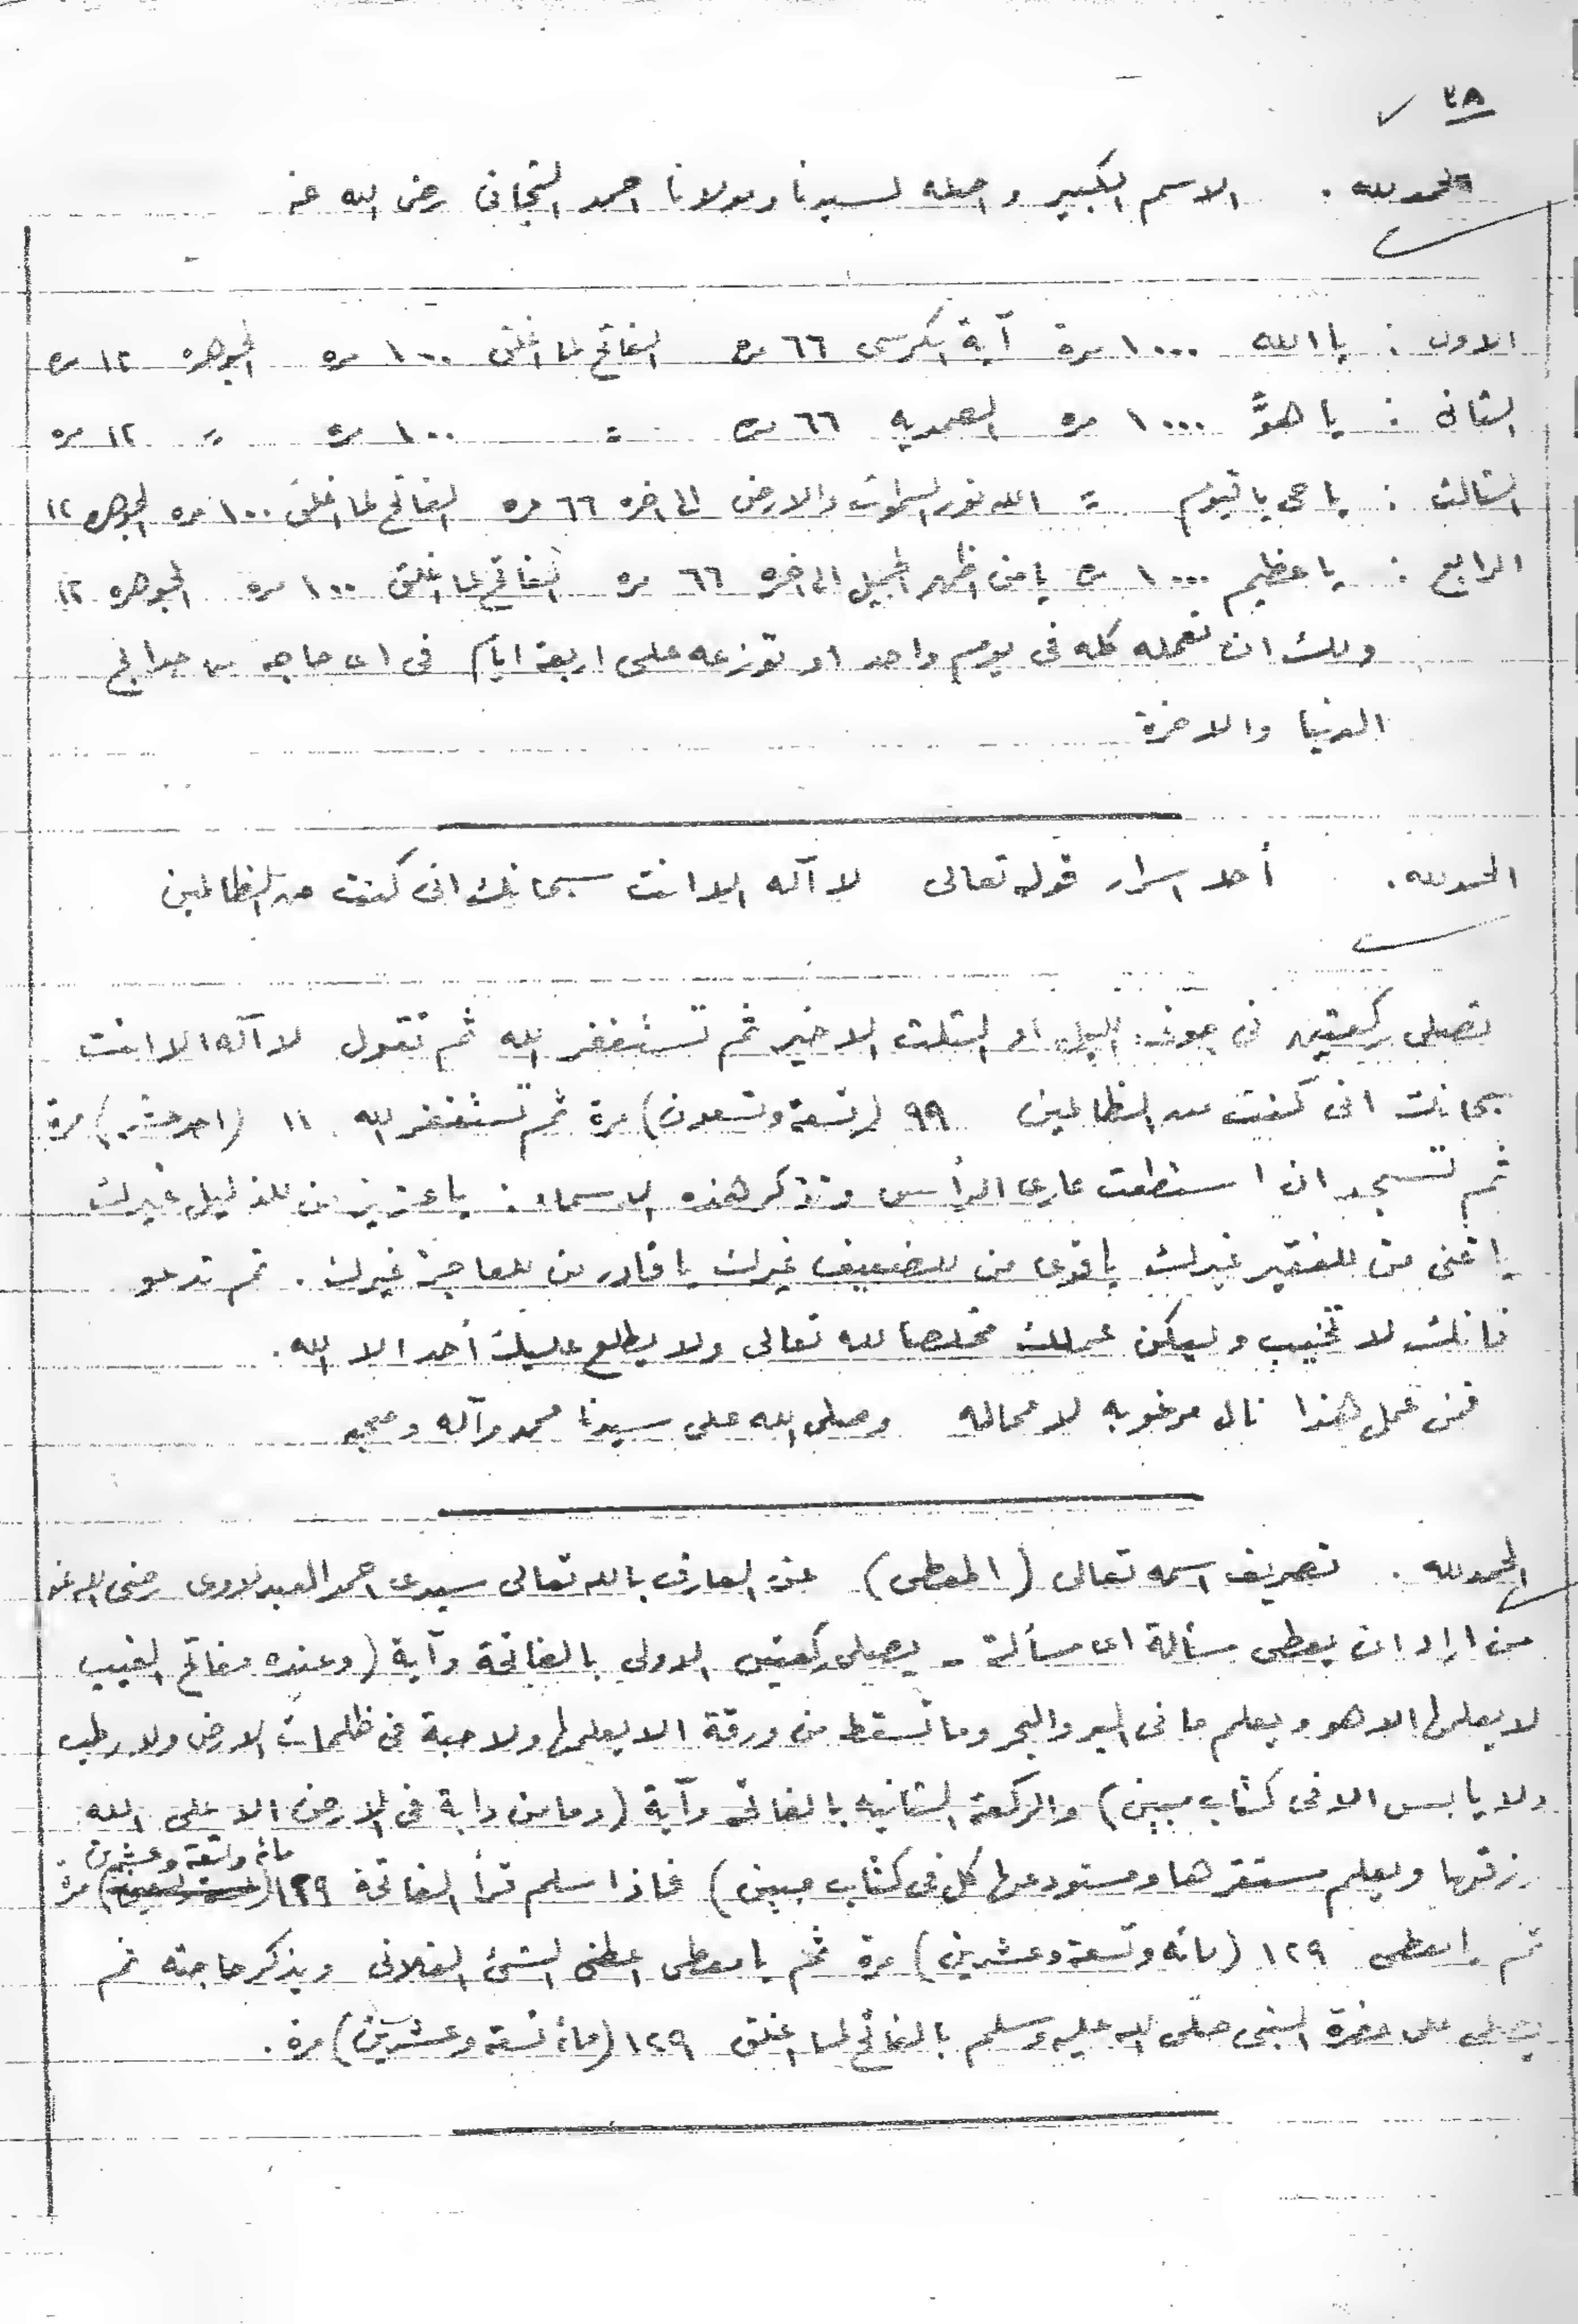 ٢٨
الحمد لله . الاسم الكبير واصله لسيدنا ومولانا احمد التجانى رضى الله عنه
الاول : يا الله ١٠٠٠ مرة آية الكرسى ٦٦ مره الفاتح لما اغلق ١٠٠ مره الجوهره ١٢ مره
الثانى : يا هوَّ ١٠٠٠ مره الصمديه ٦٦ مره = ١٠٠ مره = ١٢ مره
الثالث : يا حى يا قيوم = الله نور السموات والارض الى اخره ٦٦ مره الفاتح لما اغلق ١٠٠ مره الجوهره ١٢
الرابع : يا عظيم ١٠٠٠ مره يا من اظهر الجميل الى اخره ٦٦ مره الفاتح لما اغلق ١٠٠ مره الجوهره ١٢
ولك ان تعمله كله فى يوم واحد او توزعه على اربعة ايام فى اى حاجه من حوائج
الدنيا والاخرة
الحمد لله . أحد اسرار قوله تعالى لا آله الا انت سبحانك انى كنت من الظالمين
تصلى ركعتين فى جوف الليل او الثلث الاخير ثم تستغفر الله ثم تقول لا آله الا انت
سبحانك انى كنت من الظالمين ٩٩ (تسعة وتسعون) مرة ثم تستغفر الله ١١ (احد عشر) مرة
ثم تسجد ان استطعت عارى الرأس وتذكر هذه الاسماء : يا عزيز من للذليل غيرك
يا غنى من للفقير غيرك يا قوى من للضعيف غيرك يا قادر من للعاجز غيرك . ثم تدعو
فانك لا تخيب وليكن عملك مخلصا لله تعالى ولا يطلع عليك أحد الا الله .
فمن عمل هذا نال مرغوبه لا محاله وصلى الله على سيدنا محمد وآله وصحبه
الحمد لله . تصريف اسمه تعالى (المعطى) عن العارف بالله تعالى سيدى احمد العبدلاوى رضى الله عنه
من اراد ان يعطى مسألة اى مسألة - يصلى ركعتين الاولى بالفاتحة وآية (وعنده مفاتح الغيب
لا يعلمها الا هو ويعلم ما فى البر والبحر وما تسقط من ورقة الا يعلمها ولا حبة فى ظلمات الارض ولا رطب
ولا يابس الا فى كتاب مبين) والركعة الثانيه بالفاتحة وآية (وما من دابة فى الارض الا على الله
رزقها ويعلم مستقرها ومستودعها كل فى كتاب مبين) فاذا سلم قرأ الفاتحة ١٢٩ (مائة وتسعة وعشرين) مرة
ثم يا معطى ١٢٩ (مائه وتسعة وعشرين) مرة ثم يا معطى اعطنى الشئ الفلانى ويذكر حاجته ثم
يصلى على حضرة النبى صلى الله عليه وسلم بالفاتح لما اغلق ١٢٩ (مائة تسعة وعشرين) مرة .